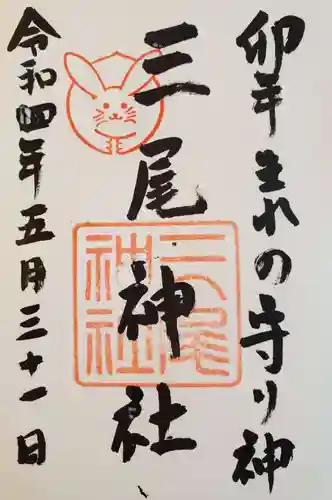 卯年生れの守り神
三尾神社
三尾神社
令和四年五月三十一日